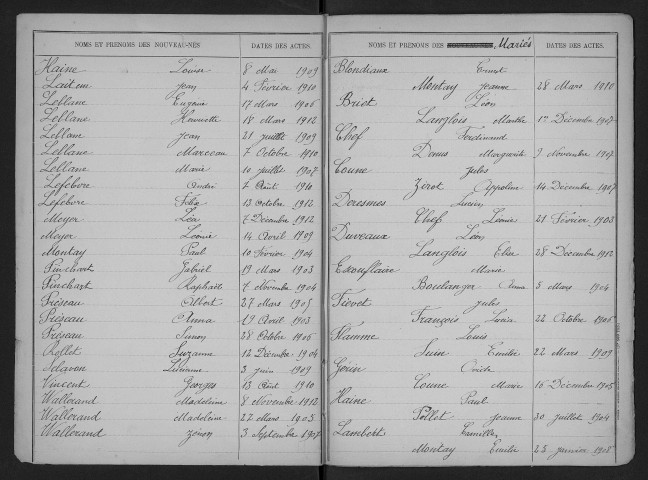 NOMS ET PRENOMS DES NOUVEAU-NÉS DATES DES ACTES.
Haine Louise 8 Mai 1909
Jean 4 Février 1910
Leblanc Eugénie 17 Mars 1906
Leblanc Henriette 18 Mars 1912
Leblanc Jean 21 juillet 1909
Leblanc Marceau 7 Octobre 1910
Leblanc Marie 10 juillet 1907
Lefebvre André 7 Août 1910
Lefebvre Félix 13 Octobre 1912
Meyer Léa 7 Décembre 1912
Meyer Léonie 14 Avril 1909
Montay Paul 10 Février 1904
Pinchart Gabriel 19 Mars 1903
Pinchart Raphaël 7 Novembre 1904
Préseau Albert 27 Mars 1905
Préseau Anna 19 Avril 1903
Préseau Simon 28 Octobre 1906
Suzanne 12 Décembre 1904
3 juin 1909
Vincent Georges 13 Août 1910
Wallerand Madeleine 8 Novembre 1912
Wallerand Madeleine 27 Mars 1903
Wallerand Zénon 3 Septembre 1907
NOMS ET PRENOMS DES Mariés DATES DES ACTES.
Blondiaux Ernest
Montay Jeanne 28 Mars 1910
Briet Léon
Langlois Marthe 1er Décembre 1907
Chef Ferdinand
Denis Marguerite 9 Novembre 1907
Coune Jules
Zérot Appoline 14 Décembre 1907
Deresmes Lucien
Chef Léonie 21 Février 1903
Duveaux Léon
Langlois Elise 28 Décembre 1912
Marie
Boulanger 5 Mars 1904
Fievet Jules
François 22 Octobre 1906
Flamme Louis
Emilie 22 Mars 1909
Coune Marie 16 Décembre 1905
Haine Paul
Pollet Jeanne 30 juillet 1904
Lambert Camille
Montay Emilie 25 janvier 1908